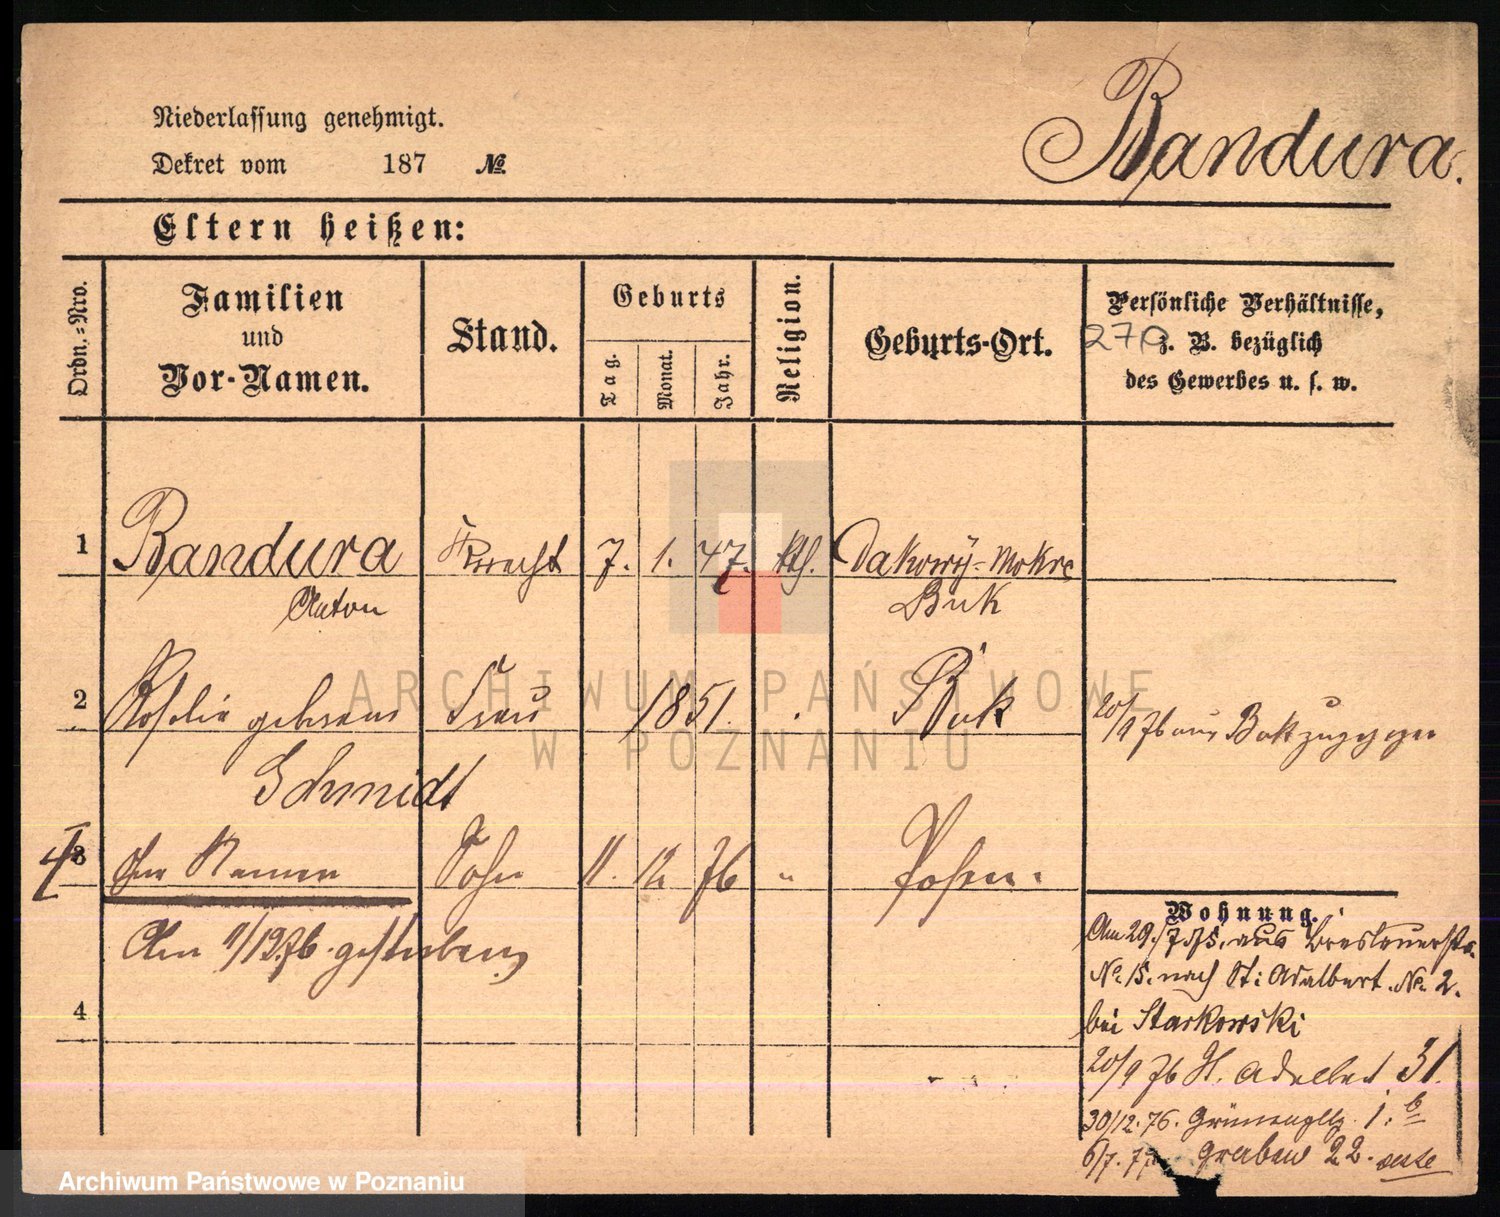 Bandura.
Niederlassung genehmigt.
Dekret vom 187 №
Eltern heißen:
Ordn.=Nro.
Familien
und
Vor-Namen.
Stand.
Geburts
Tag.
Monat.
Jahr.
Religion.
Geburts-Ort.
Persönliche Verhältnisse,
z. B. bezüglich
des Gewerbes u. s. w.
270
1 Bandura Knecht 7. 1. 47. kth. Dakowÿ-Mokre
Anton Buk
2 Roselie geborene Frau 1851. Buk 20/9 76 aus Buk zugezogen
Schmidt
3 ohne Namen Sohn 11. 12 76 " Posen.
Am 11/12.76 gestorben
4
Wohnung.
Am 29./7.75. aus Breslauerstr.
No 15. nach St: Adalbert. No 2.
bei Starkowski
20/9 76 St. Adalbert 31.
30/12.76. 1. b
6/7. 77 Graben 22.
ARCHIWUM PAŃSTWOWE
W POZNANIU
Archiwum Państwowe w Poznaniu